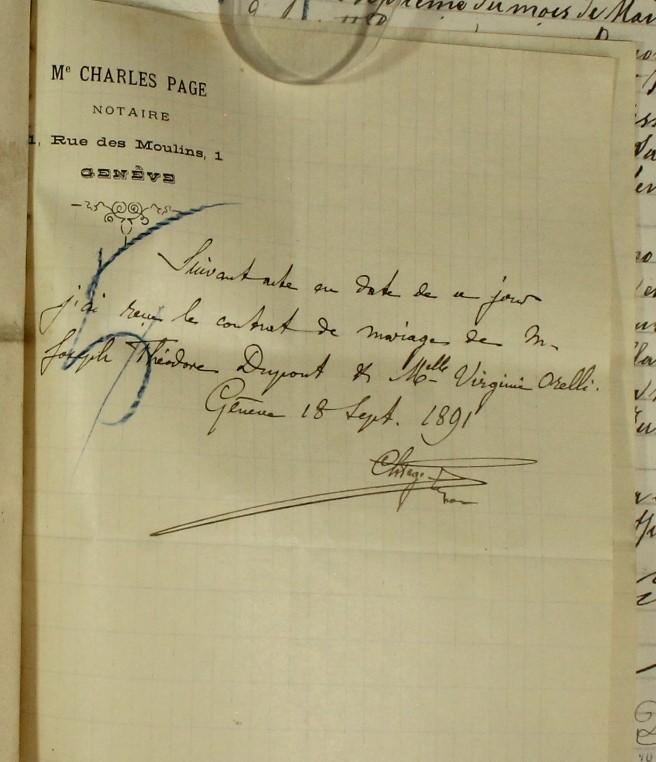 septième du mois de Mai
Me CHARLES PAGE
NOTAIRE
1, Rue des Moulins, 1
GENÈVE
Suivant acte en date de ce jour
j'ai reçu le contrat de mariage de M.
Joseph Théodore Dupont & Melle Virginie Orelli.
Genève 18 Sept. 1891
ChPage